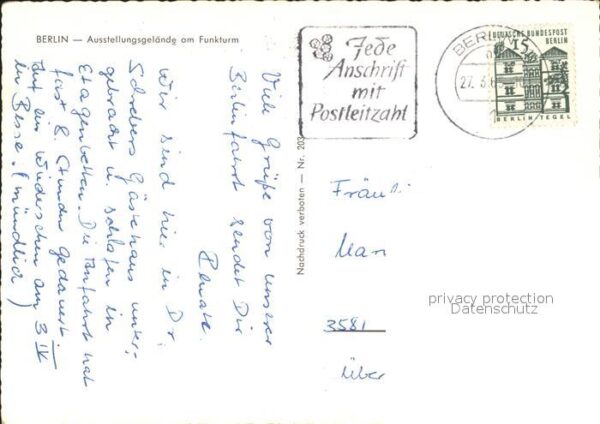 BERLIN — Ausstellungsgelände am Funkturm
Viele Grüße von unserer
Berlinfahrt sendet Dir
Renate.
Wir sind hier in Dr.
Schreibers Gästehaus unter-
gebracht u. schlafen in
Etagenbetten. Die Anfahrt hat
fast 8 Stunden gedauert.
Auf ein Wiedersehen am 3. IV
in Besse. (mündlich)
Nachdruck verboten — Nr. 203
Jede
Anschrift
mit
Postleitzahl
BERLIN
27. 3. 65
DEUTSCHE BUNDESPOST
BERLIN
15
BERLIN-TEGEL
Fräu
3581
über
privacy protection
Datenschutz